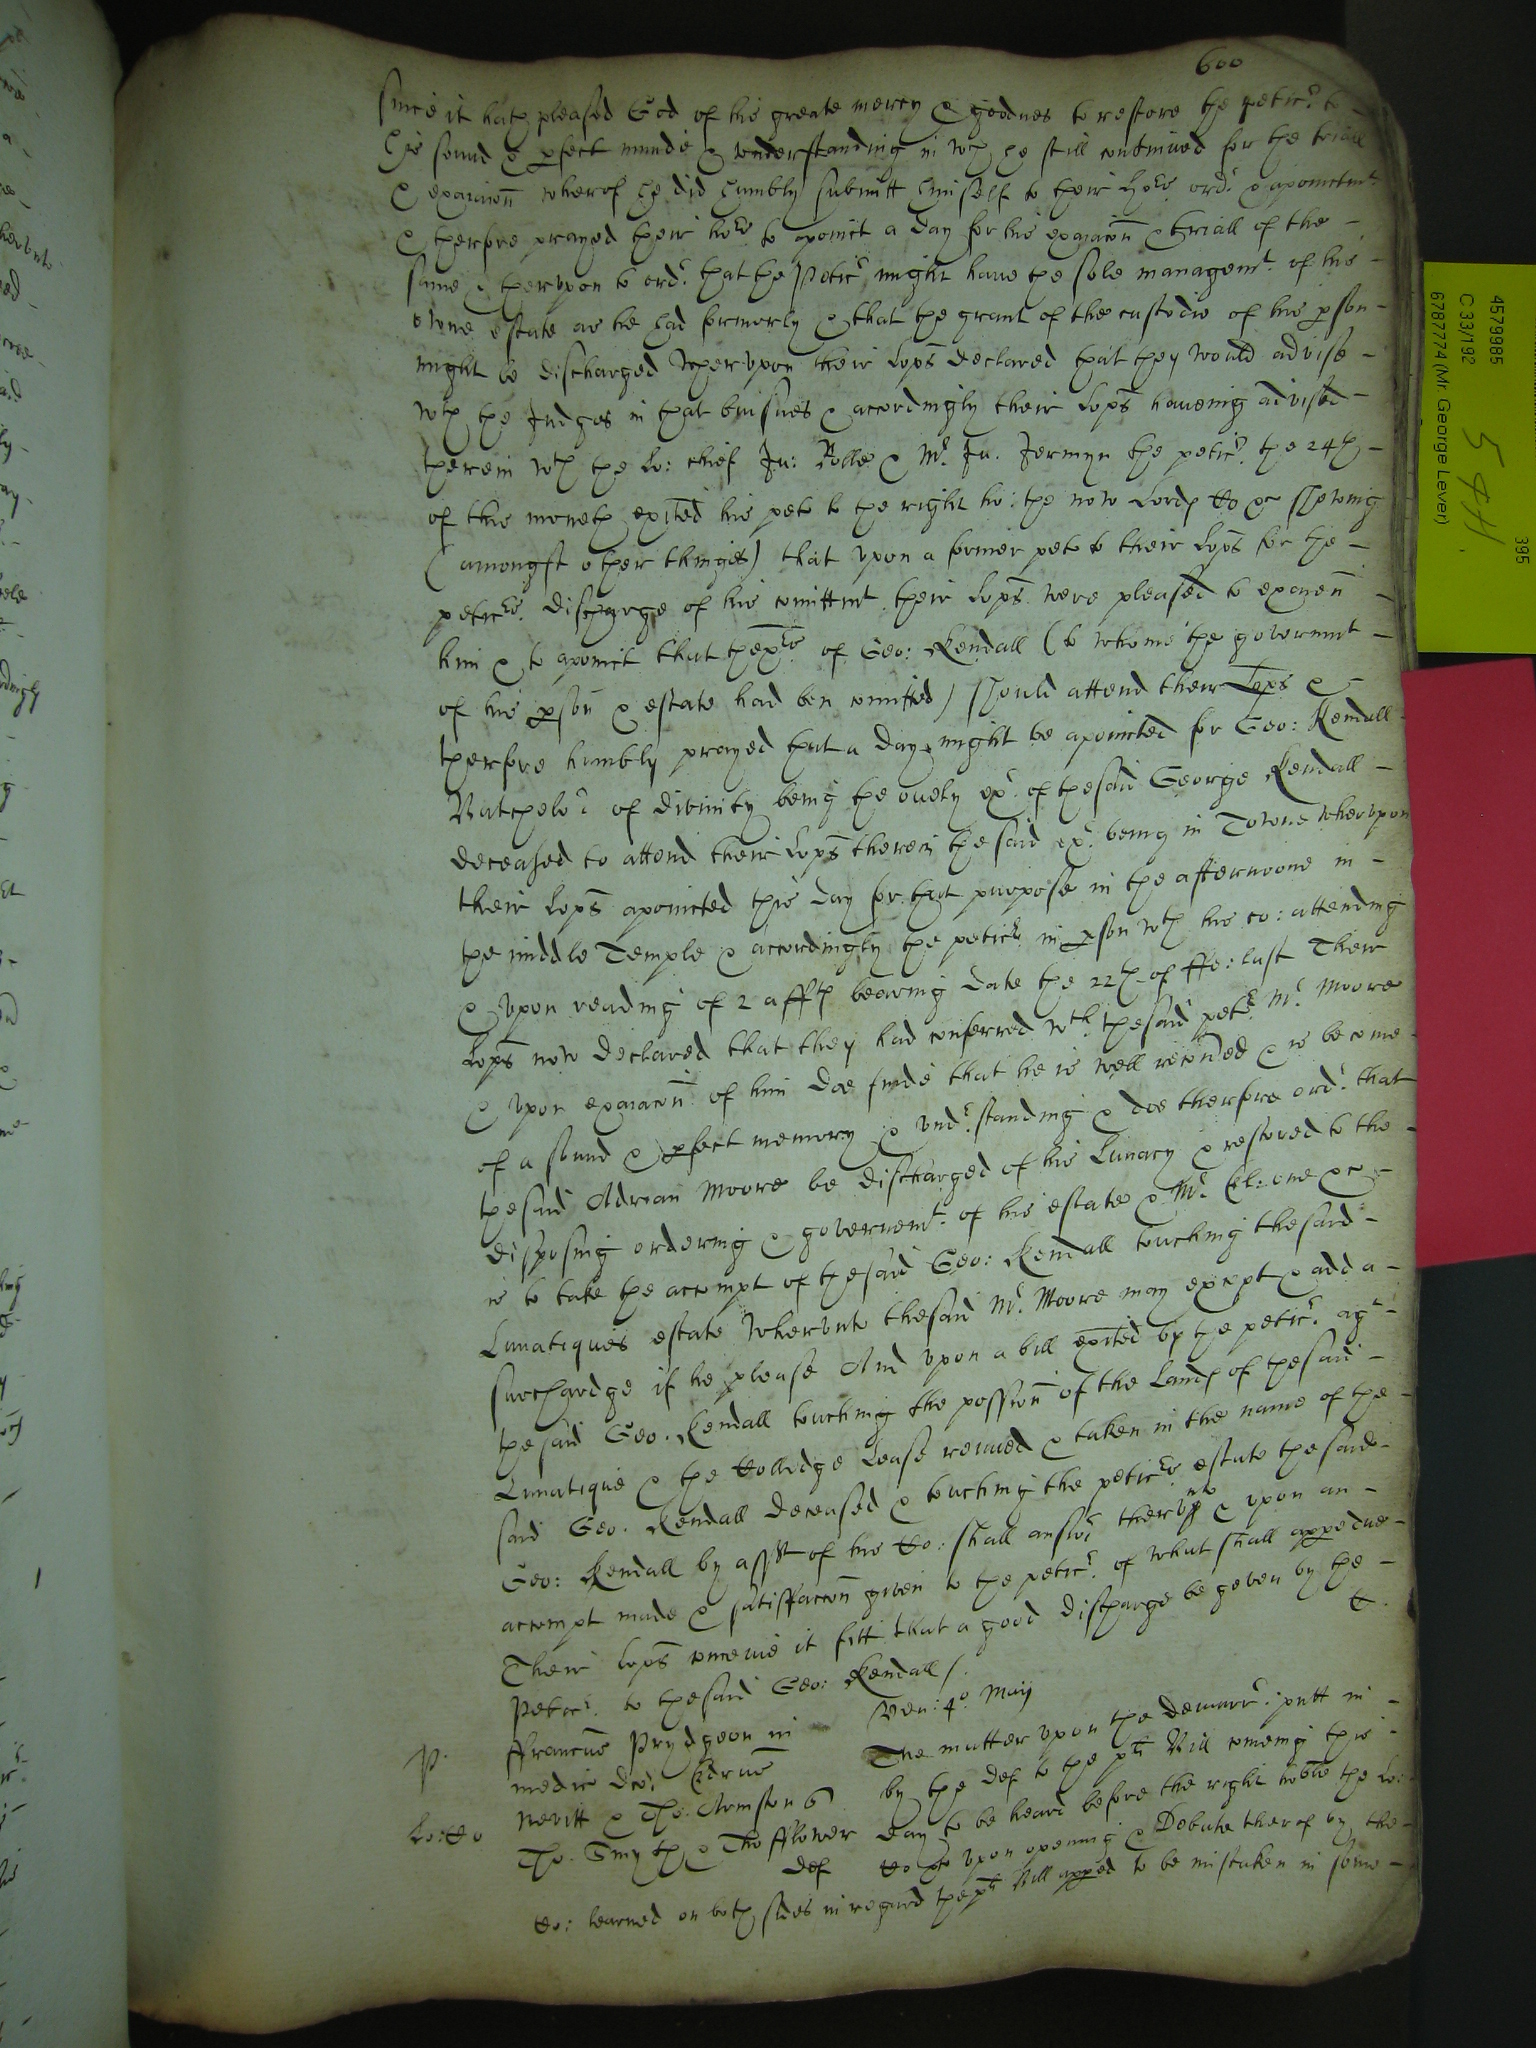 600
since it hath pleased God of his greate mercy & goodnes to restore the peticr. to
his sound & pfect minde & understanding in wch he still continued for the triall
& exaiacon wherof he did humbly submitt himself to their hors. ordr. & apointmt.
& therfore prayed their hors. to apoint a day for his exaiacon & triall of the
same & therupon to ordr. that the Peticr might have the sole managemt. of his
owne estate as he had formerly & that the grant of the custodie of his pson
might be discharged wherupon their Lopps declared that they would advise
wth the Judges in that buisnes & accordingly their Lopps haveing advised
therein wth the Lo: chief Ju: Rolle & Mr. Ju. Jermyn the peticr. the 24th
of this moneth exited his peto to the right ho: the now Lords Co &c shewing
(amongst other things) that upon a former peto to their Lopps for the
peticrs. discharge of his comittmt. their Lopps were pleased to exaien
him & to apoint that thexrs. of Geo: Kendall (to whome the governmt
of his pson & estate had ben comitted) should attend their Lopps &
therfore humbly prayed that a day might be apointed for Geo: Kendall
Batchelor of divinity being the onely exr. of thesaid George Kendall
deceased to attend their Lopps therein the said exr. being in Towne wherupon
their Lopps apointed this day for that purpose in the afternoone in
the middle Temple & accordingly the peticr. in pson wth his co: attending
& upon reading of 2 affts bearing date the 22th of ffe: last Their
Lopps now declared that they had conferred wth thesaid petr. Mr. Moore
& upon exaiacon of him doe finde that he is well recoued & is become
of a sound & pfect memory & undrstanding & doe therfore ordr. that
thesaid Adrian Moore be discharged of his Lunacy & restored to the
disposing ordering & governemt. of his estate & Mr. Eltone &c
is to take the accompt of thesaid Geo: Kendall touching thesaid
Lunatiques estate wherunto thesaid Mr. Moore may except & add a
surchardge if he please And upon a bill exited by the peticr. agt
thesaid Geo. Kendall touching the possion of the Lands of thesaid
Lunatique & the Colledge Lease renued & taken in the name of the
said Geo. Kendall deceased & touching the peticrs. estate thesaid
Geo: Kendall by asst of his Co: shall answr therunto & upon an
accompt made & satisffaccon given to the peticr. of what shall appe due
Their Lopps conceive it fitt that a good discharge be geven by the
Peticr. to thesaid Geo: Kendall /.
Ven: 4o. May
P.
ffrancus Prydgeon in
medic dcor
Nevitt & Tho. Armston
Lo: Co
Tho. Smyth & Tho fflower
def
The matter upon the demurr. putt in
by the def to the plts Bill comeing this
day to be heard before the right hoble the Lo:
Co &c upon opening & Debate therof by the
Co: learned on both sides in regard the plts Bill apped to be mistaken in some
4579985
C 33/192
6787774 (Mr. George Lever)
395